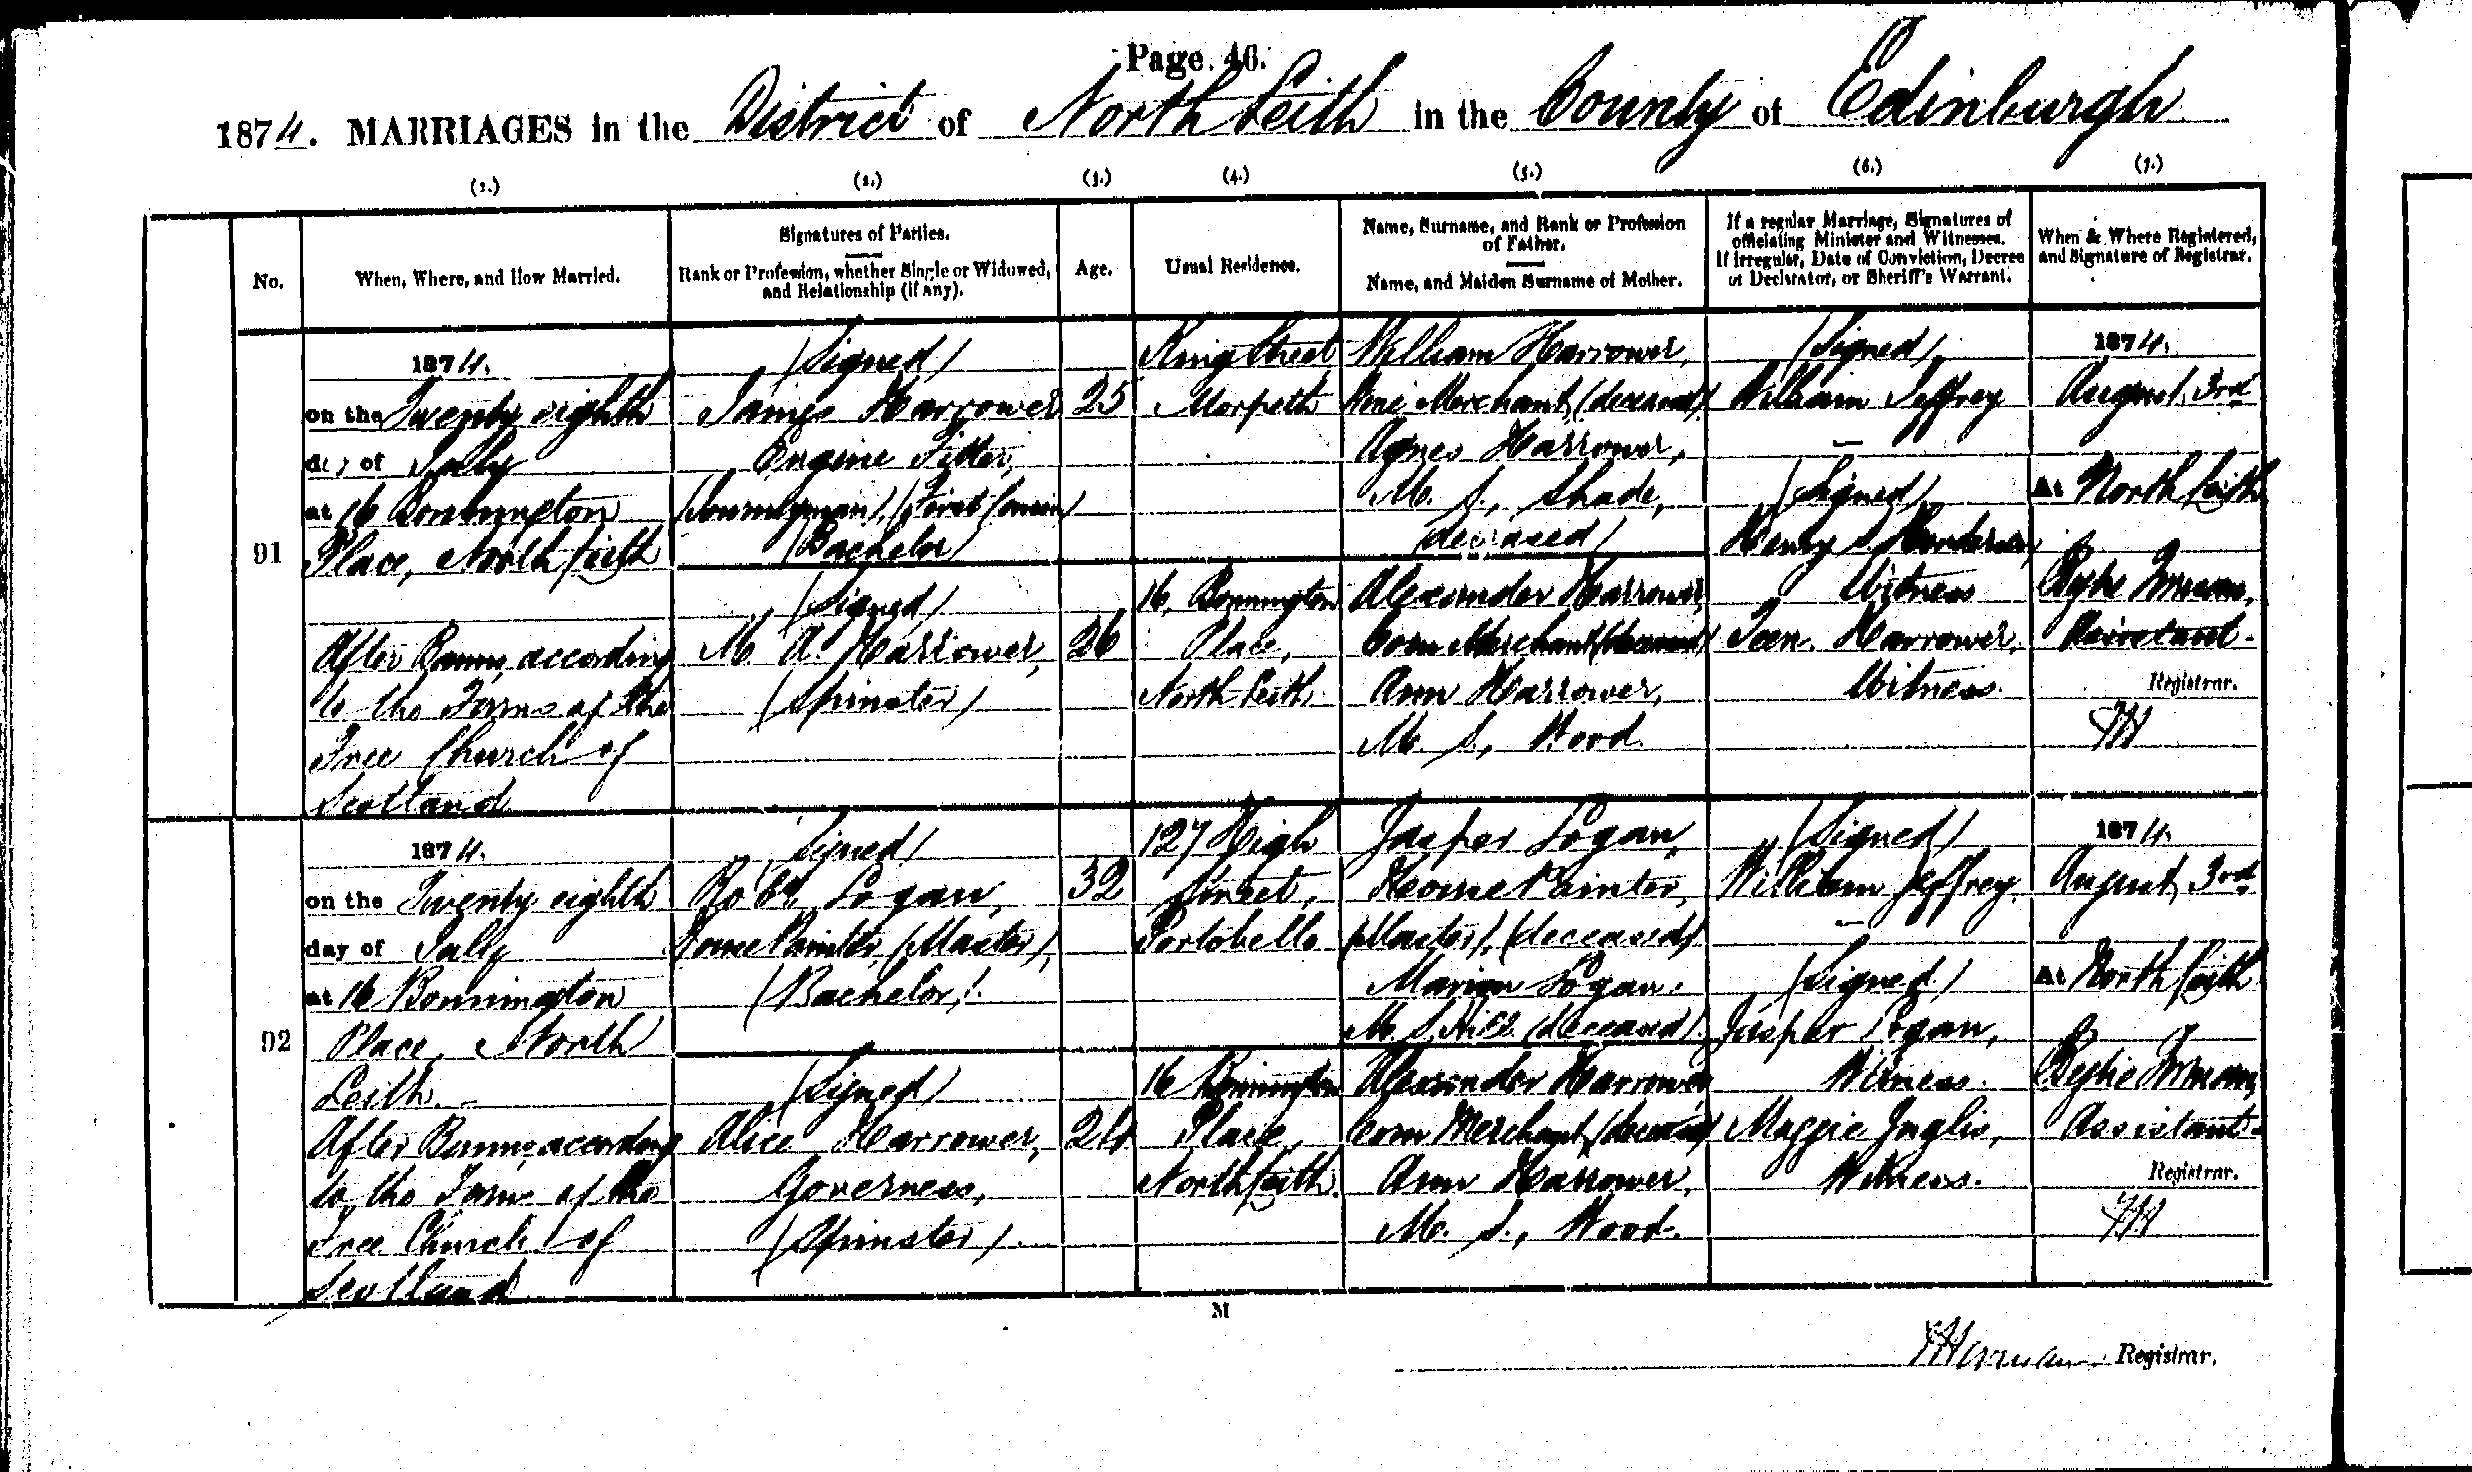 Page. 46.
1874. MARRIAGES in the District of North Leith in the County of Edinburgh
(1.) (2.) (3.) (4.) (5.) (6.) (7.)
No.
When, Where, and How Married.
Signatures of Parties.
Rank or Profession, whether Single or Widowed,
and Relationship (if any).
Age.
Usual Residence.
Name, Surname, and Rank or Profession
of Father.
Name, and Maiden Surname of Mother.
If a regular Marriage, Signatures of
officiating Minister and Witnesses.
If irregular, Date of Conviction, Decree
of Declarator, or Sheriff's Warrant.
When & Where Registered,
and Signature of Registrar.
91
1874.
on the Twenty eighth
day of July
at 16 Bonnington
Place, North Leith
After Banns, according
to the Forms of the
Free Church of
Scotland
(Signed)
James Harrower
Engine Fitter,
(Journeyman), (First Cousin)
(Bachelor)
(Signed)
M. A. Harrower,
(Spinster)
25
26
King Street
Morpeth
16, Bonnington
Place,
North Leith.
William Harrower,
Merchant, (deceased)
Agnes Harrower,
M. S., Shade,
(deceased)
Alexander Harrower,
Corn Merchant (deceased)
Ann Harrower,
M. S., Wood.
(Signed),
William Jeffrey
(Signed)
Henry S. Henderson,
Witness
Harrower,
Witness.
1874.
August, 3rd
At North Leith
Assistant.
Registrar.
92
1874.
on the Twenty eighth
day of July
at 16 Bonnington
Place, North
Leith.
After Banns, according
to the Forms of the
Free Church of
Scotland
Signed)
Robt. Logan,
House Painter, (Master),
(Bachelor).
(Signed)
Alice Harrower,
Governess,
(Spinster).
32
24
127 High
Street,
Portobello
16 Bonnington
Place,
North Leith.
Jasper Logan,
House Painter,
(Master), (deceased)
Marion Logan.
M. S. (deceased).
Alexander Harrower
Corn Merchant, (deceased)
Ann Harrower,
M. S., Wood.
(Signed)
William Jeffrey.
(Signed)
Jasper Logan,
Witness.
Maggie Inglis,
Witness.
1874.
August, 3rd
At North Leith
Assistant.
Registrar.
M
Registrar.